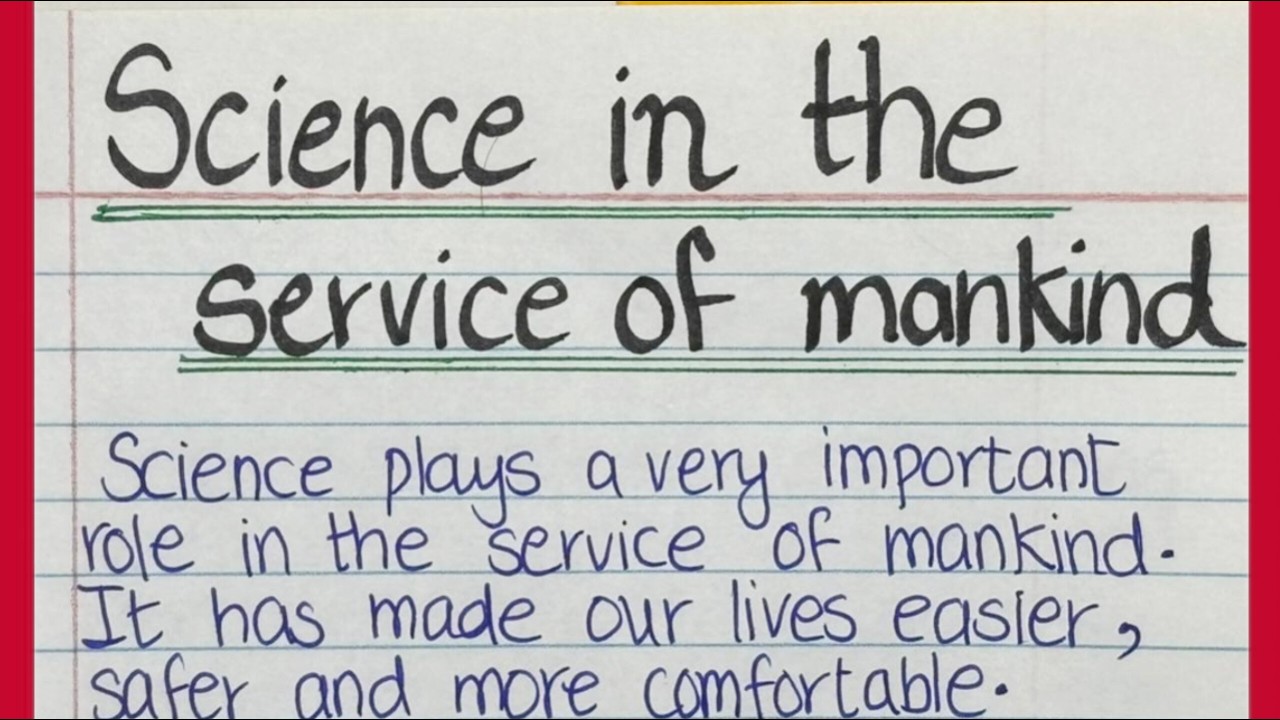 Science in the
service of mankind
Science plays a very important
role in the service of mankind.
It has made our lives easier,
safer and more comfortable.